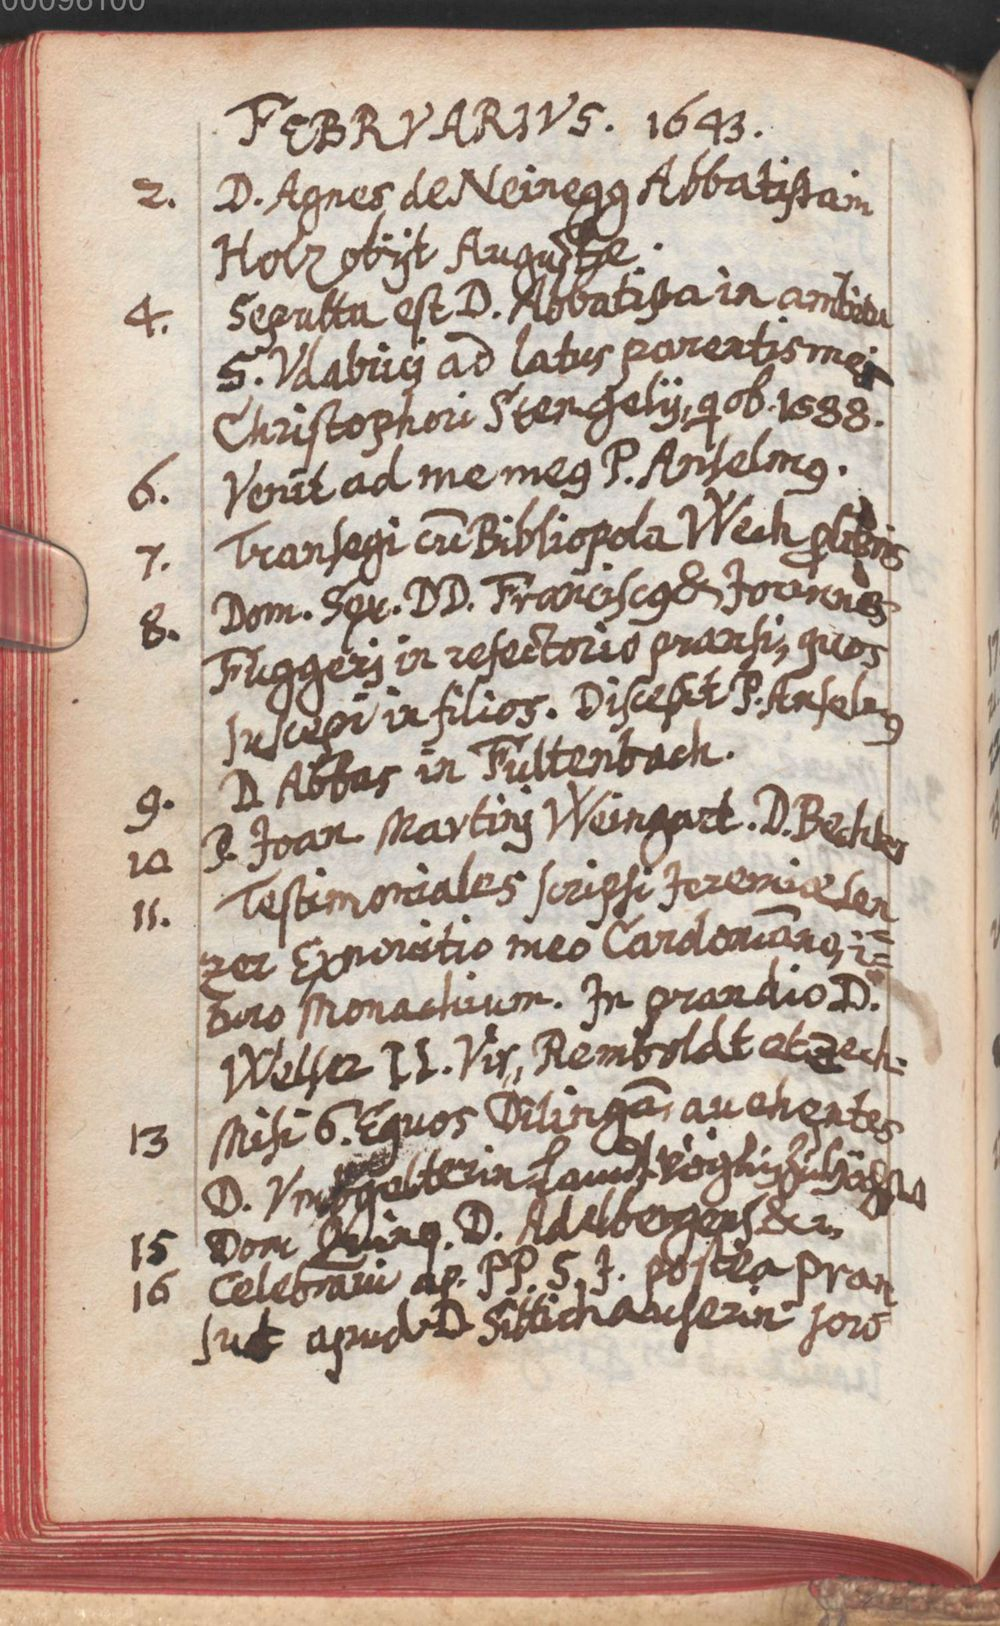 00098100
FEBRVARIVS. 1643.
2. D. Agnes de Neinegg Abbatissa in
Holz obijt Augustae.
4. Sepulta est D. Abbatissa in ambitu
S. Vdalrici ad latus parentis mei
Christophori Stengelij, q ob. 1588.
6. Venit ad me meq P. Anselmq.
7. Transegi cũ Bibliopola Weh p libris
8. Dom. Sex. DD. Franciscq & Joannes
Fuggerj in refectorio pransi, quos
suscepi in filios. Discessit P. Anselmq
9. D. Abbas in Fultenbach.
10 P. Joan. Martinj Weingart. D. Bechler
11. Testimoniales scripsi Jeremiae Sen
zer Exnovitio meo Cardonano, i=
turo Monachium. In prandio D.
Welser II. Vir, Remboldt et Zech.
13 Misi 6. Equos Dilingã, auehentes
D. Vngelterin
15 Dom Quinq. D. Adelbergers &c,
16 Celebraui ap. PP. S. J. postea pran
sus apud D Sittichauserin